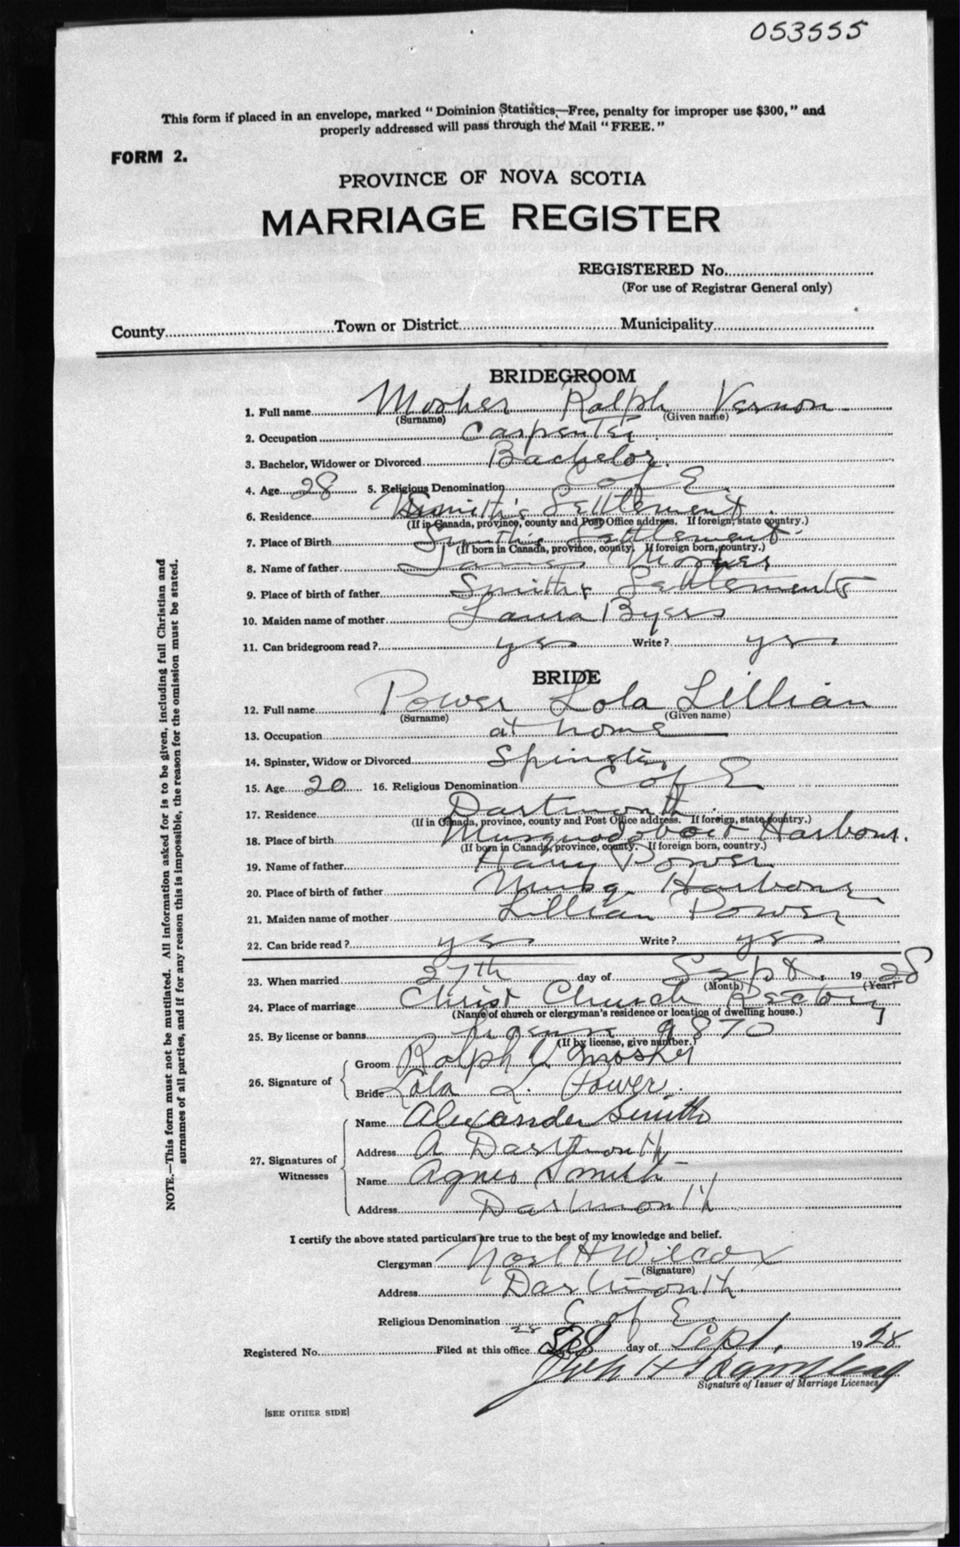 053555
This form if placed in an envelope, marked "Dominion Statistics—Free, penalty for improper use $300," and
properly addressed will pass through the Mail "FREE."
FORM 2.
PROVINCE OF NOVA SCOTIA
MARRIAGE REGISTER
REGISTERED No.
(For use of Registrar General only)
County Town or District Municipality
BRIDEGROOM
1. Full name Mosher Ralph Vernon
(Surname) (Given name)
2. Occupation Carpenter
3. Bachelor, Widower or Divorced Bachelor.
4. Age 28 5. Religious Denomination C of E.
6. Residence Smith's Settlement
(If in Canada, province, county and Post Office address. If foreign, state country.)
7. Place of Birth Smith's Settlement
(If born in Canada, province, county. If foreign born, country.)
8. Name of father James Mosher
9. Place of birth of father Smith's Settlement
10. Maiden name of mother Laura Byers
11. Can bridegroom read? yes Write? yes
BRIDE
12. Full name Power Lola Lillian
(Surname) (Given name)
13. Occupation at home
14. Spinster, Widow or Divorced Spinster
15. Age 20 16. Religious Denomination C of E
17. Residence Dartmouth
(If in Canada, province, county and Post Office address. If foreign, state country.)
18. Place of birth Musquodoboit Harbour.
(If born in Canada, province, county. If foreign born, country.)
19. Name of father Harry Power
20. Place of birth of father Musq. Harbour
21. Maiden name of mother Lillian Power
22. Can bride read? yes Write? yes
23. When married 27th day of Sept. 1928
(Month) (Year)
24. Place of marriage Christ Church Rectory
(Name of church or clergyman's residence or location of dwelling house.)
25. By license or banns license 9870
(If by license, give number.)
26. Signature of
Groom Ralph V Mosher
Bride Lola L. Power.
27. Signatures of Witnesses
Name Alexander Smith
Address Dartmouth
Name Agnes Smith
Address Dartmouth
I certify the above stated particulars are true to the best of my knowledge and belief.
Clergyman Noel H Wilcox
(Signature)
Address Dartmouth.
Religious Denomination C of E.
Registered No. Filed at this office 28 day of Sept. 1928
Signature of Issuer of Marriage Licenses
[SEE OTHER SIDE]
NOTE.—This form must not be mutilated. All information asked for is to be given, including full Christian and
surnames of all parties, and if for any reason this is impossible, the reason for the omission must be stated.